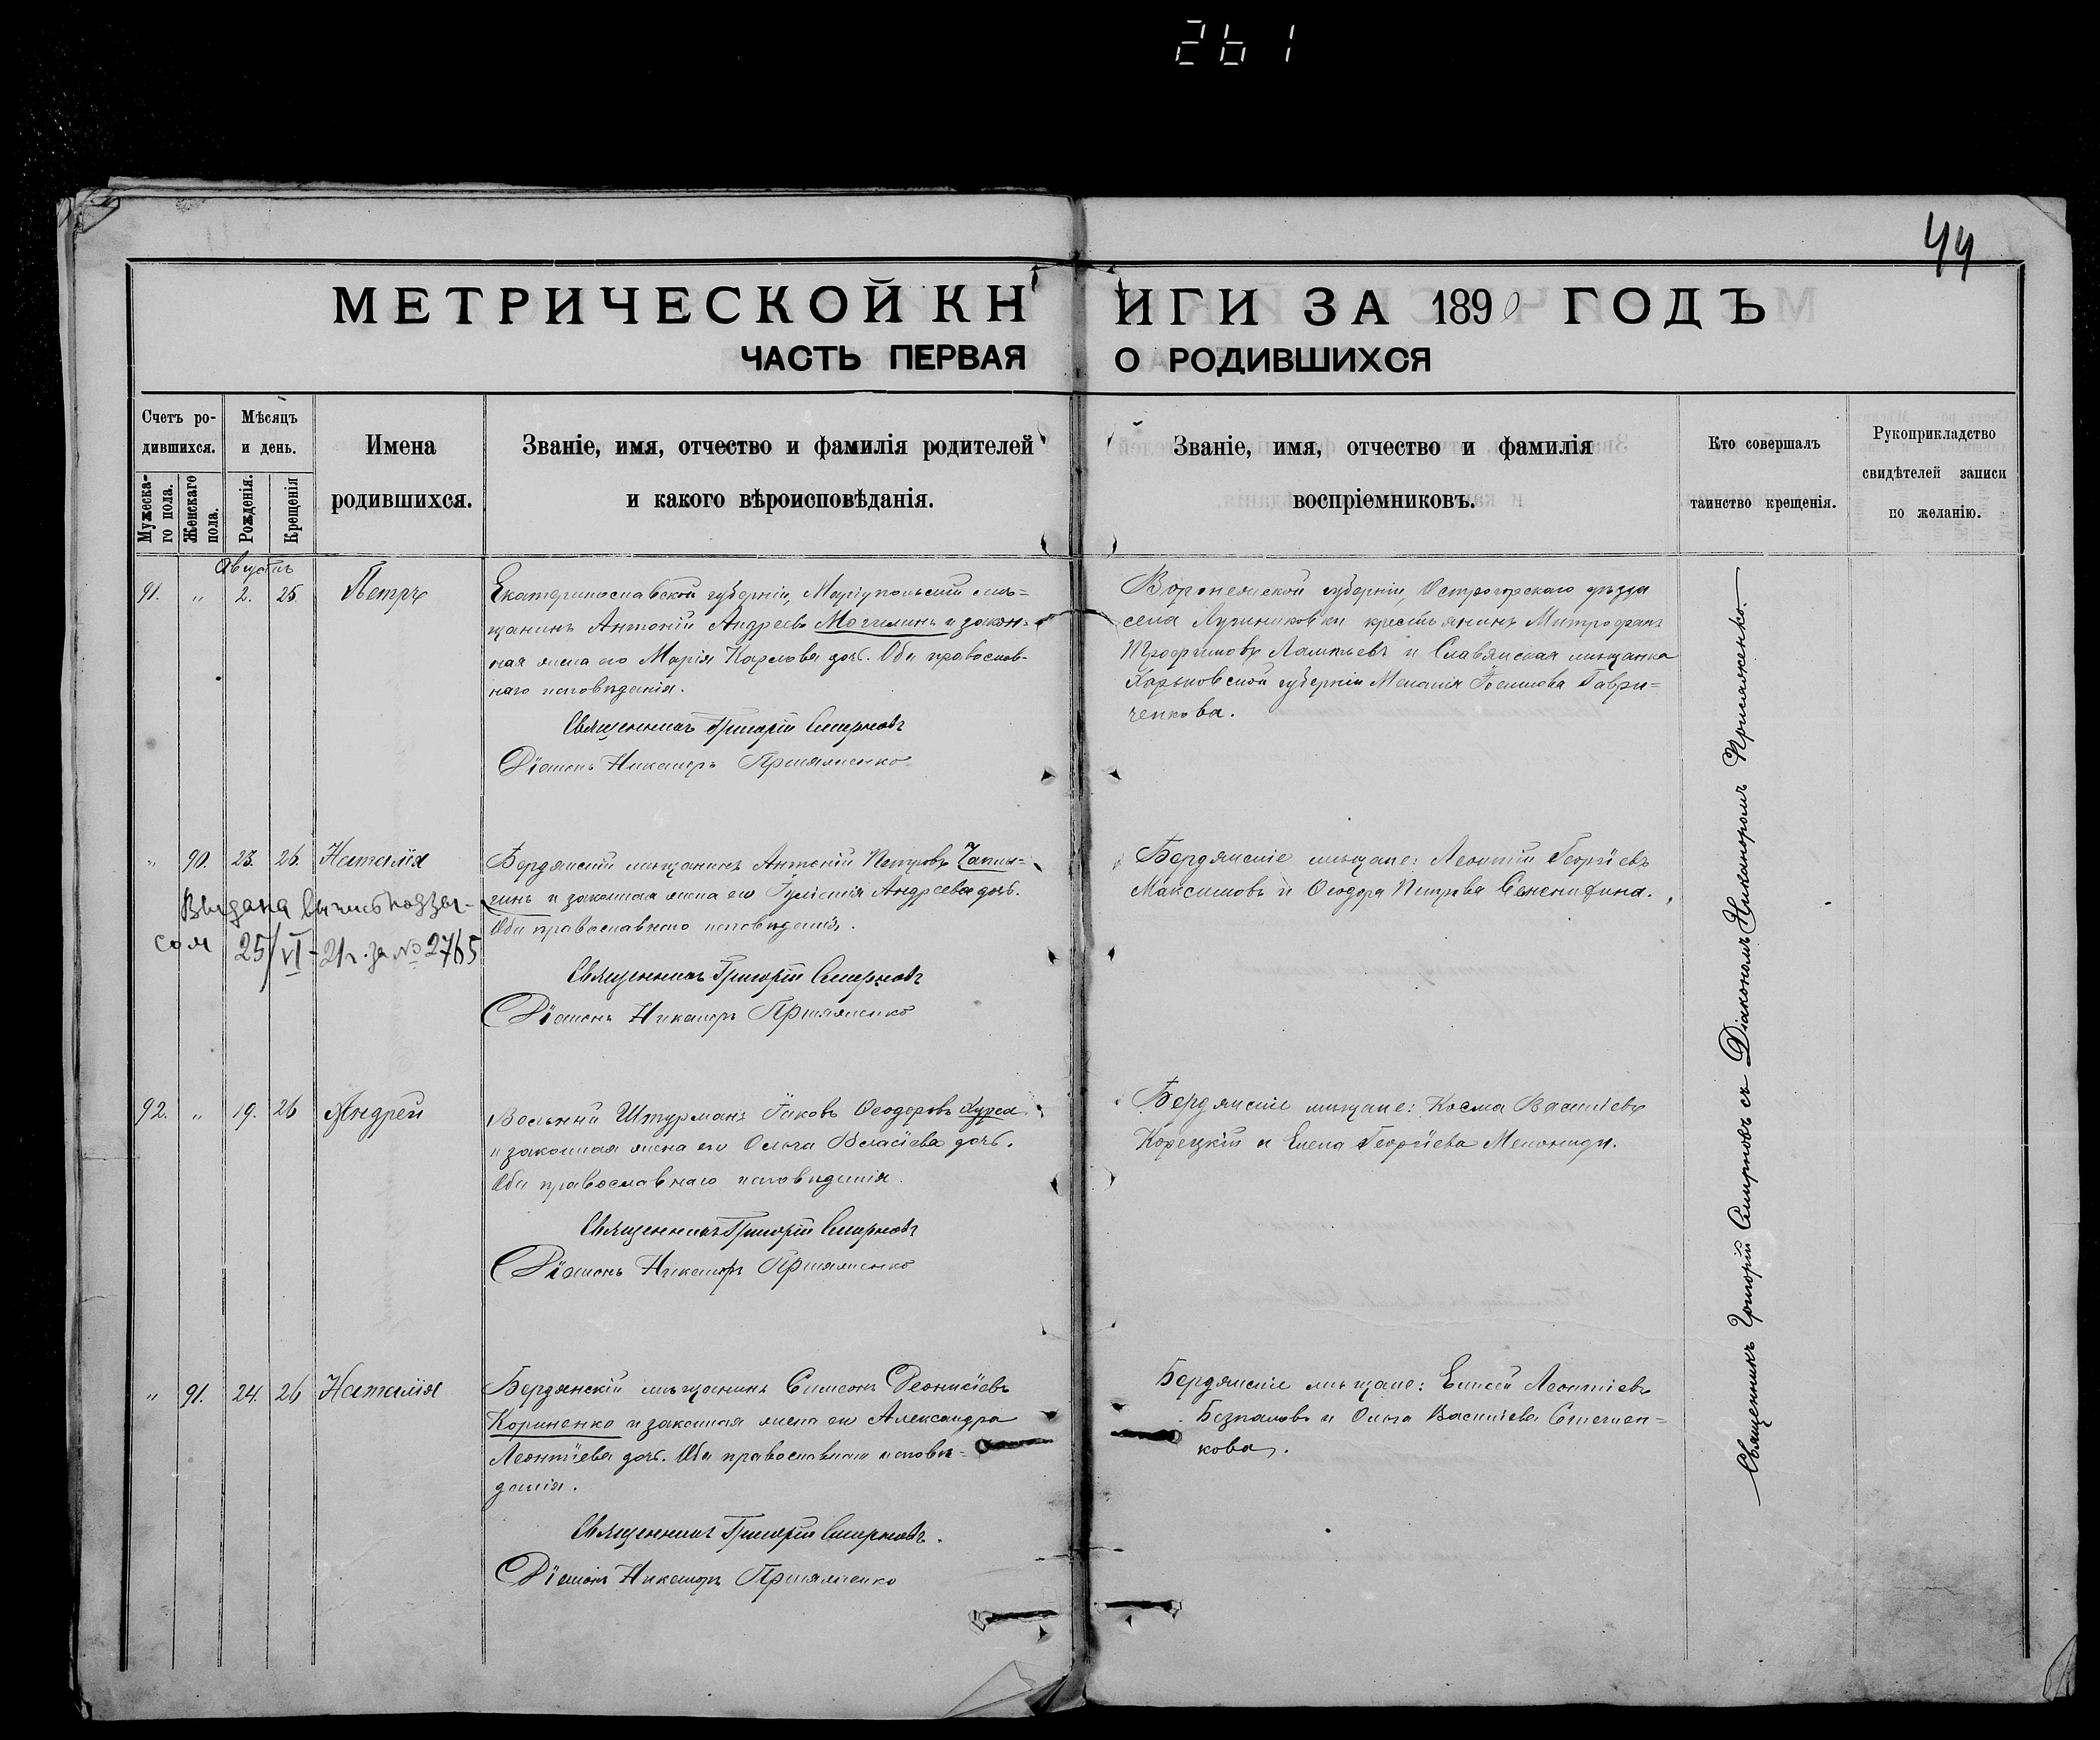 261
44
МЕТРИЧЕСКОЙ КНИГИ ЗА 1890 ГОДЪ
ЧАСТЬ ПЕРВАЯ О РОДИВШИХСЯ
Счетъ ро-
дившихся.
Мужеска-
го пола.
Женскаго
пола.
Мѣсяцъ
и день.
Рожденія.
Крещенія
Имена
родившихся.
Званіе, имя, отчество и фамилія родителей
и какого вѣроисповѣданія.
Званіе, имя, отчество и фамилія
воспріемниковъ.
Кто совершалъ
таинство крещенія.
Рукоприкладство
свидѣтелей записи
по желанію.
Августъ
91. " 2. 25 Петръ
Екатеринославской губерніи, Маріупольскій мѣ-
щанинъ Антоній Андреевъ Могилинъ и закон-
ная жена его Марія Карлова дочь. Оба православ-
наго исповѣданія.
Священникъ Григорій Смирновъ
Діаконъ Никаноръ Присяженко
Воронежской губерніи, Острогорскаго уѣзда
села крестьянинъ Митрофанъ
Трофимовъ и Славянская мѣщанка
Харьковской губерніи Меланія Гаври-
ченкова.
" 90. 23. 26. Наталія
Бердянскій мѣщанинъ Антоній Петровъ Чаплы-
гинъ и законная жена его Андреева дочь.
Оба православнаго исповѣданія.
Священникъ Григорій Смирновъ
Діаконъ Никаноръ Присяженко
Бердянскіе мѣщане: Леонтій Георгіевъ
Максимовъ и Ѳеодора Петрова
Выдана выпись подзаг-
сом 25/VI-21г. за № 2765
92. " 19. 26 Андрей
Вольный Штурманъ Іаковъ Ѳеодоровъ Курса
и законная жена его Ольга Власіева дочь.
Оба православнаго исповѣданія.
Священникъ Григорій Смирновъ
Діаконъ Никаноръ Присяженко
Бердянскіе мѣщане: Косма Василіевъ
Корецкій и Елена Георгіева
" 91. 24. 26 Наталія
Бердянскій мѣщанинъ Симеонъ Деонисіевъ
Кориненко и законная жена его Александра
Леонтіева дочь. Оба православнаго исповѣ-
данія.
Священникъ Григорій Смирновъ.
Діаконъ Никаноръ Присяженко
Бердянскіе мѣщане: Елисей Леонтіевъ
Безпаловъ и Ольга Василіева
кова.
Священникъ Григорій Смирновъ съ Діакономъ Никаноромъ Присяженко.